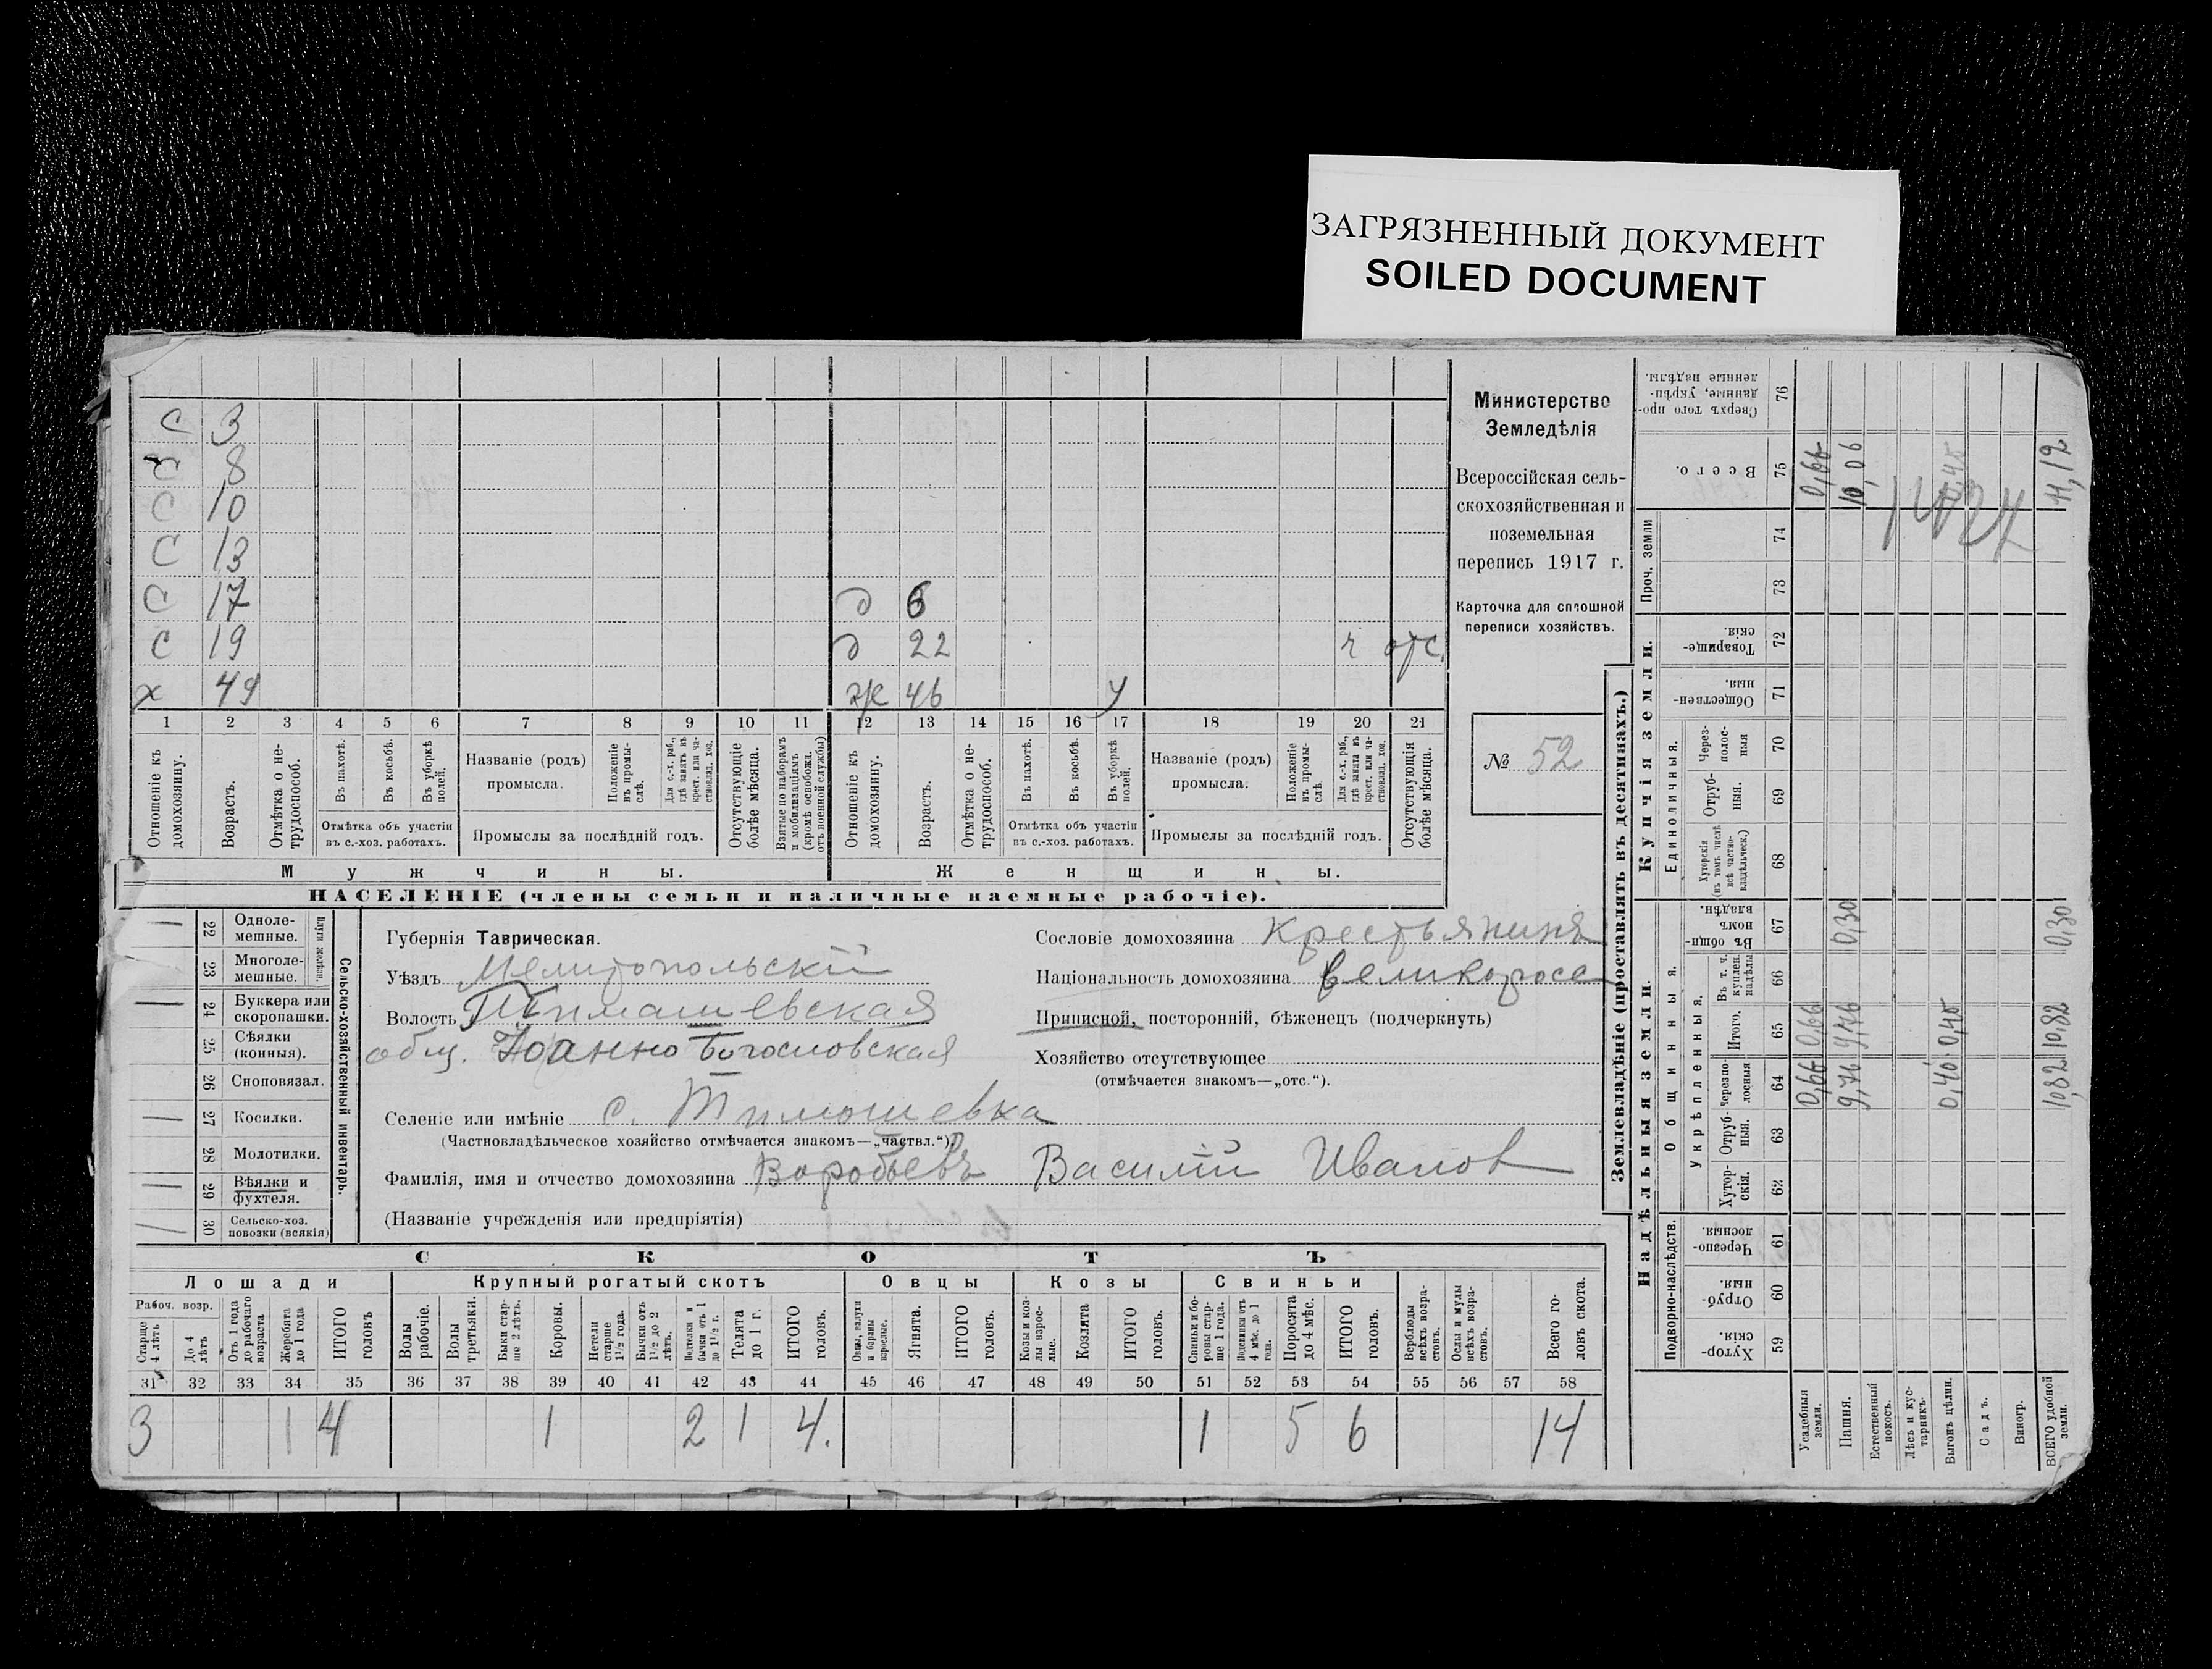 ЗАГРЯЗНЕННЫЙ ДОКУМЕНТ
SOILED DOCUMENT
с 3
с 8
с 10
с 13
с 17 д 6
с 19 д 22 ч отс.
х 49 ж 46 у
1 2 3 4 5 6 7 8 9 10 11 12 13 14 15 16 17 18 19 20 21
Отношеніе къ домохозяину.
Возрастъ.
Отмѣтка о нетрудоспособ.
Въ пахотѣ.
Въ косьбѣ.
Въ уборкѣ полей.
Отмѣтка объ участіи въ с.-хоз. работахъ.
Названіе (родъ) промысла.
Положеніе въ промыслѣ.
Для с.-х. раб., гдѣ занятъ въ крест. или частновлад. хоз.
Промыслы за послѣдній годъ.
Отсутствующіе болѣе мѣсяца.
Взятые по наборамъ и мобилизаціямъ (кромѣ освобожд. отъ военной службы)
Отношеніе къ домохозяину.
Возрастъ.
Отмѣтка о нетрудоспособ.
Въ пахотѣ.
Въ косьбѣ.
Въ уборкѣ полей.
Отмѣтка объ участіи въ с.-хоз. работахъ.
Названіе (родъ) промысла.
Положеніе въ промыслѣ.
Для с.-х. раб., гдѣ занята въ крест. или частновлад. хоз.
Промыслы за послѣдній годъ.
Отсутствующія болѣе мѣсяца.
Мужчины. Женщины.
НАСЕЛЕНІЕ (члены семьи и наличные наемные рабочіе).
Министерство
Земледѣлія
Всероссійская сель-
скохозяйственная и
поземельная
перепись 1917 г.
Карточка для сплошной
переписи хозяйствъ.
№ 52
Сельско-хозяйственный инвентарь.
Плуги желѣзн.
22 Одноле-мешные.
23 Многоле-мешные.
24 Буккера или скоропашки.
25 Сѣялки (конныя).
26 Сноповязал.
27 Косилки.
28 Молотилки.
29 Вѣялки и фухтеля.
30 Сельско-хоз. повозки (всякія)
Губернія Таврическая.
Уѣздъ Мелитопольскій
Волость Тимашевская
общ. Іоанно Богословская
Селеніе или имѣніе с. Тимошевка
(Частновладѣльческое хозяйство отмѣчается знакомъ—„частвл.“).
Фамилія, имя и отчество домохозяина Воробьевъ Василій Иванов
(Названіе учрежденія или предпріятія)
Сословіе домохозяина Крестьянинъ
Національность домохозяина великоросс
Приписной, посторонній, бѣженецъ (подчеркнуть)
Хозяйство отсутствующее
(отмѣчается знакомъ—„отс.“).
СКОТЪ
Лошади Крупный рогатый скотъ Овцы Козы Свиньи
Рабоч. возр.
Старше 4 лѣтъ
До 4 лѣтъ
Отъ 1 года до рабочаго возраста
Жеребята до 1 года
ИТОГО головъ
Волы рабочіе.
Волы третьяки.
Быки старше 2 лѣтъ.
Коровы.
Нетели старше 1½ года.
Бычки отъ 1½ до 2 лѣтъ.
Подтелки и бычки отъ 1 до 1½ г.
Телята до 1 г.
ИТОГО головъ.
Овцы, валухи и бараны взрослые.
Ягнята.
ИТОГО головъ.
Козы и козлы взрослые.
Козлята
ИТОГО головъ.
Свиньи и боровы старше 1 года.
Подсвинки отъ 4 мѣс. до 1 года.
Поросята до 4 мѣс.
ИТОГО головъ.
Верблюды всѣхъ возрастовъ.
Ослы и мулы всѣхъ возрастовъ.
Всего головъ скота.
31 32 33 34 35 36 37 38 39 40 41 42 43 44 45 46 47 48 49 50 51 52 53 54 55 56 57 58
3 1 4 1 2 1 4. 1 5 6 14
Землевладѣніе (проставлять въ десятинахъ.)
Надѣльныя земли. Купчія земли. Проч. земли
Подворно-наслѣдств.
Общинныя.
Укрѣпленныя.
Единоличныя.
59 Хуторскія.
60 Отрубныя.
61 Черезполосныя.
62 Хуторскія.
63 Отрубныя.
64 Черезполосныя
65 Итого.
66 Въ т. ч. куплен. надѣлы
67 Въ общинномъ владѣн.
68 Хуторскія (въ томъ числѣ всѣ частновладѣльческ.)
69 Отрубныя.
70 Черезполосныя
71 Общественныя.
72 Товарищескія.
73
74
75 Всего.
76 Сверхъ того проданные, укрѣпленные надѣлы.
Усадебныя земли. 0,66 0,66 0,66
Пашня. 9,76 9,76 0,30 10,06
Естественный покосъ.
Лѣсъ и кустарникъ.
Выгонъ цѣлин. 0,40 0,40
Садъ.
Виногр.
ВСЕГО удобной земли. 10,82 10,82 0,30 11,12